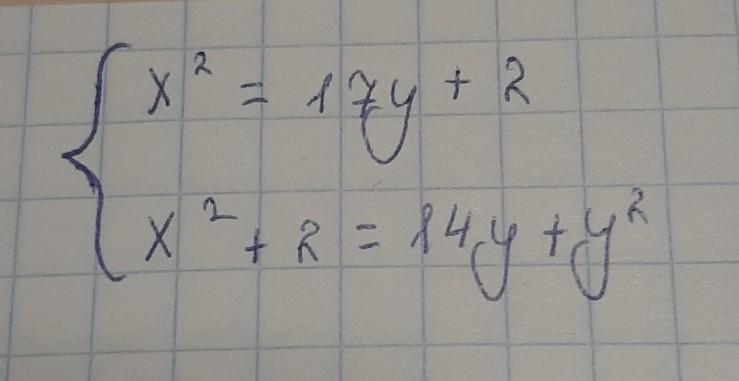 x² = 17y + 2
x² + 2 = 14y + y²